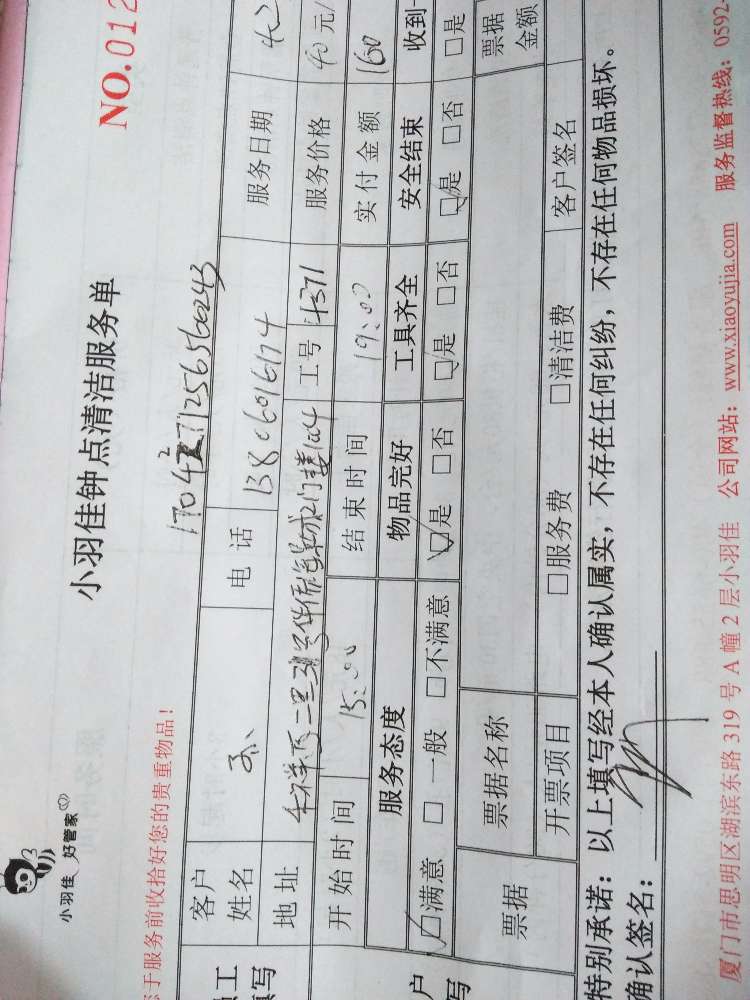 小羽佳 好管家
NO.012
小羽佳钟点清洁服务单
于服务前收拾好您的贵重物品!
客户姓名 电话 13806016174 服务日期 4.2
地址 工号 4371 服务价格 40元/
开始时间 15:00 结束时间 19:00 实付金额 160
服务态度 物品完好 工具齐全 安全结束 收到
☑满意 □一般 □不满意 ☑是 □否 ☑是 □否 ☑是 □否 □是
票据 票据名称 票据金额
开票项目 □服务费 □清洁费 客户签名
特别承诺:以上填写经本人确认属实,不存在任何纠纷,不存在任何物品损坏。
确认签名:
厦门市思明区湖滨东路 319 号 A 幢 2 层小羽佳 公司网站:www.xiaoyujia.com 服务监督热线:0592-